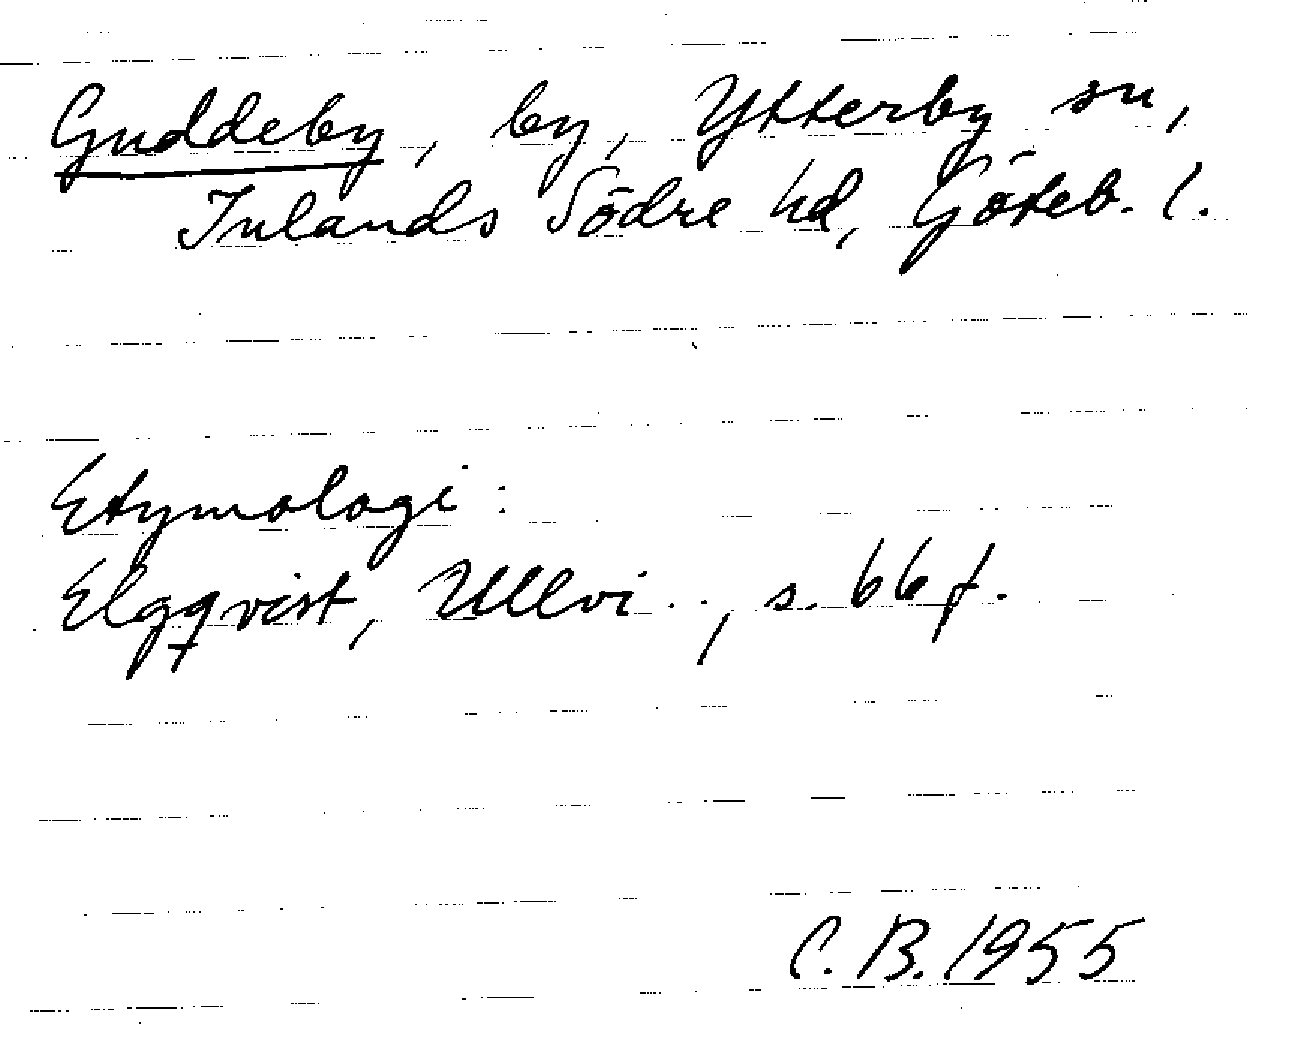 Guddeby, by, Ytterby sn,
Inlands Södre hd, Göteb. l.
Etymologi:
Elgqvist, Ullvi . . , s. 66 f.
C. B. 1955